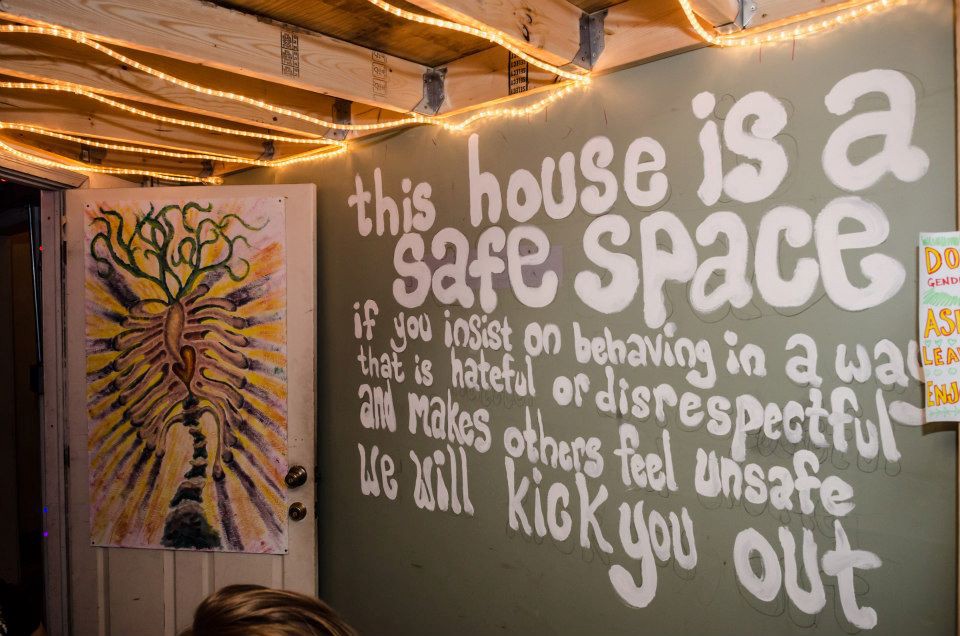 this house is a
safe space
if you insist on behaving in a way
that is hateful or disrespectful
and makes others feel unsafe
we will kick you out
DO
GEND
ASK
LEA
ENJ